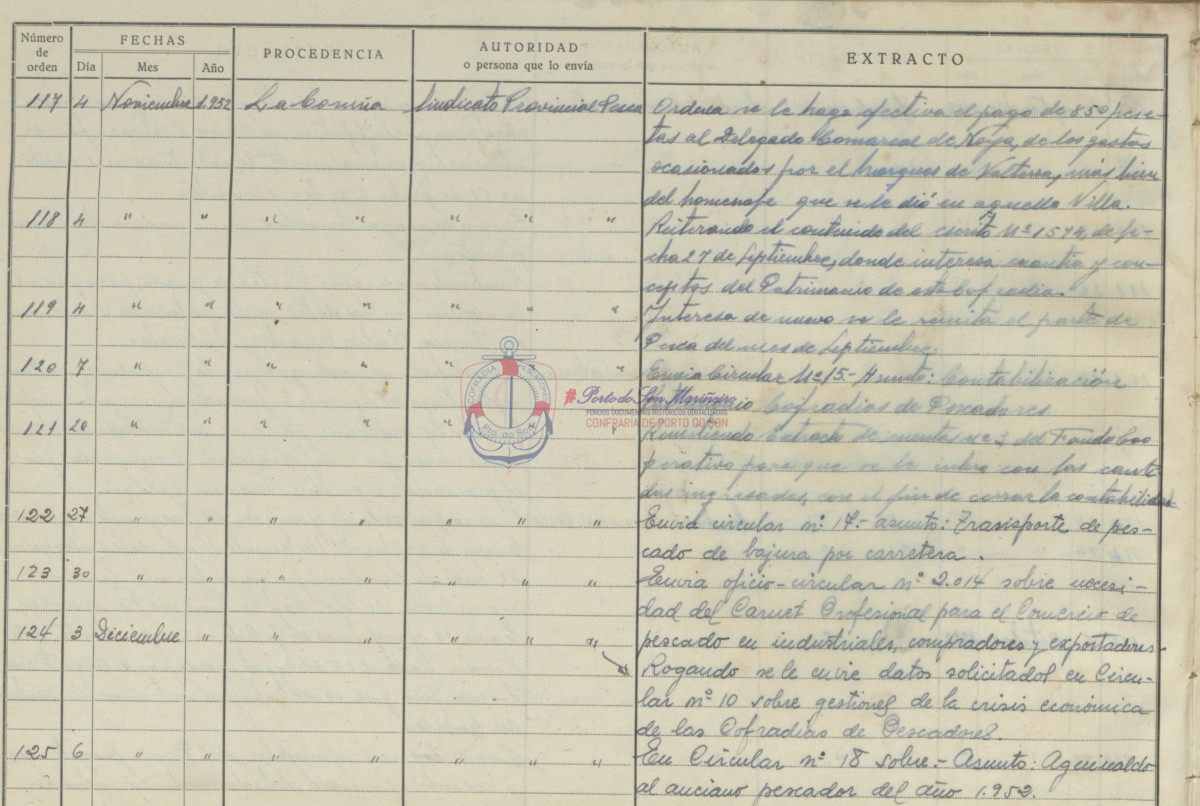 Número de orden FECHAS PROCEDENCIA AUTORIDAD o persona que lo envía EXTRACTO
Día Mes Año
117 4 Noviembre 1.952 La Coruña Sindicato Provincial Pesca Ordena se le haga efectivo el pago de 850 pese-
tas al Delegado Comarcal de Noya, de los gastos
ocasionados por el Marques de Valterra, más bien
del homenaje que se le dió en aquella Villa.
118 4 " " " " " " " Reiterando el contenido del escrito Nº 1574, de fe-
cha 27 de Septiembre, donde interesa cuantia y con-
ceptos del Patrimonio de esta Cofradia.
119 4 " " " " " " " Interesa de nuevo se le remita el parte de
Pesca del mes de Septiembre.
120 7 " " " " " " " Envia Circular Nº 15.- Asunto: Contabilización
Cofradias de Pescadores
121 20 " " " " " " Remitiendo Extracto de cuentas nº 3 del Fondo Coo
perativo para que se le cubra con las canti
das ingresadas, con el fin de cerrar la contabilidad
122 27 " " " " " " " Envia circular nº 17.- asunto: Transporte de pes-
cado de bajura por carretera.
123 30 " " " " " " " Envia oficio-circular nº 2.014 sobre necesi-
dad del Carnet Profesional para el Comercio de
124 3 Diciembre " " " " " " pescado en industriales, compradores y exportadores.
Rogando se le envie datos solicitados en Circu-
lar nº 10 sobre gestiones de la crisis económica
de las Cofradias de Pescadores.
125 6 " " " " " " " En Circular nº 18 sobre.- Asunto: Aguinaldo
al anciano pescador del año 1.952.
COFRADIA PESCADORES
Pto. do Son
#PortodoSonMariñeiro
FONDOS DOCUMENTAIS HISTÓRICOS DIXITALIZADOS
CONFRARIA DE PORTO DO SON